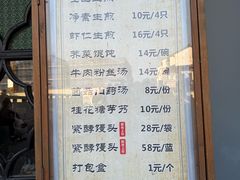 净素生煎 10元/4只
虾仁生煎 16元/4只
荠菜馄饨 14元/碗
牛肉粉丝汤 14元/碗
山药汤 8元/份
桂花糖芋艿 10元/份
紫酵馒头 28元/袋
紫酵馒头 58元/蓝
打包盒 1元/个